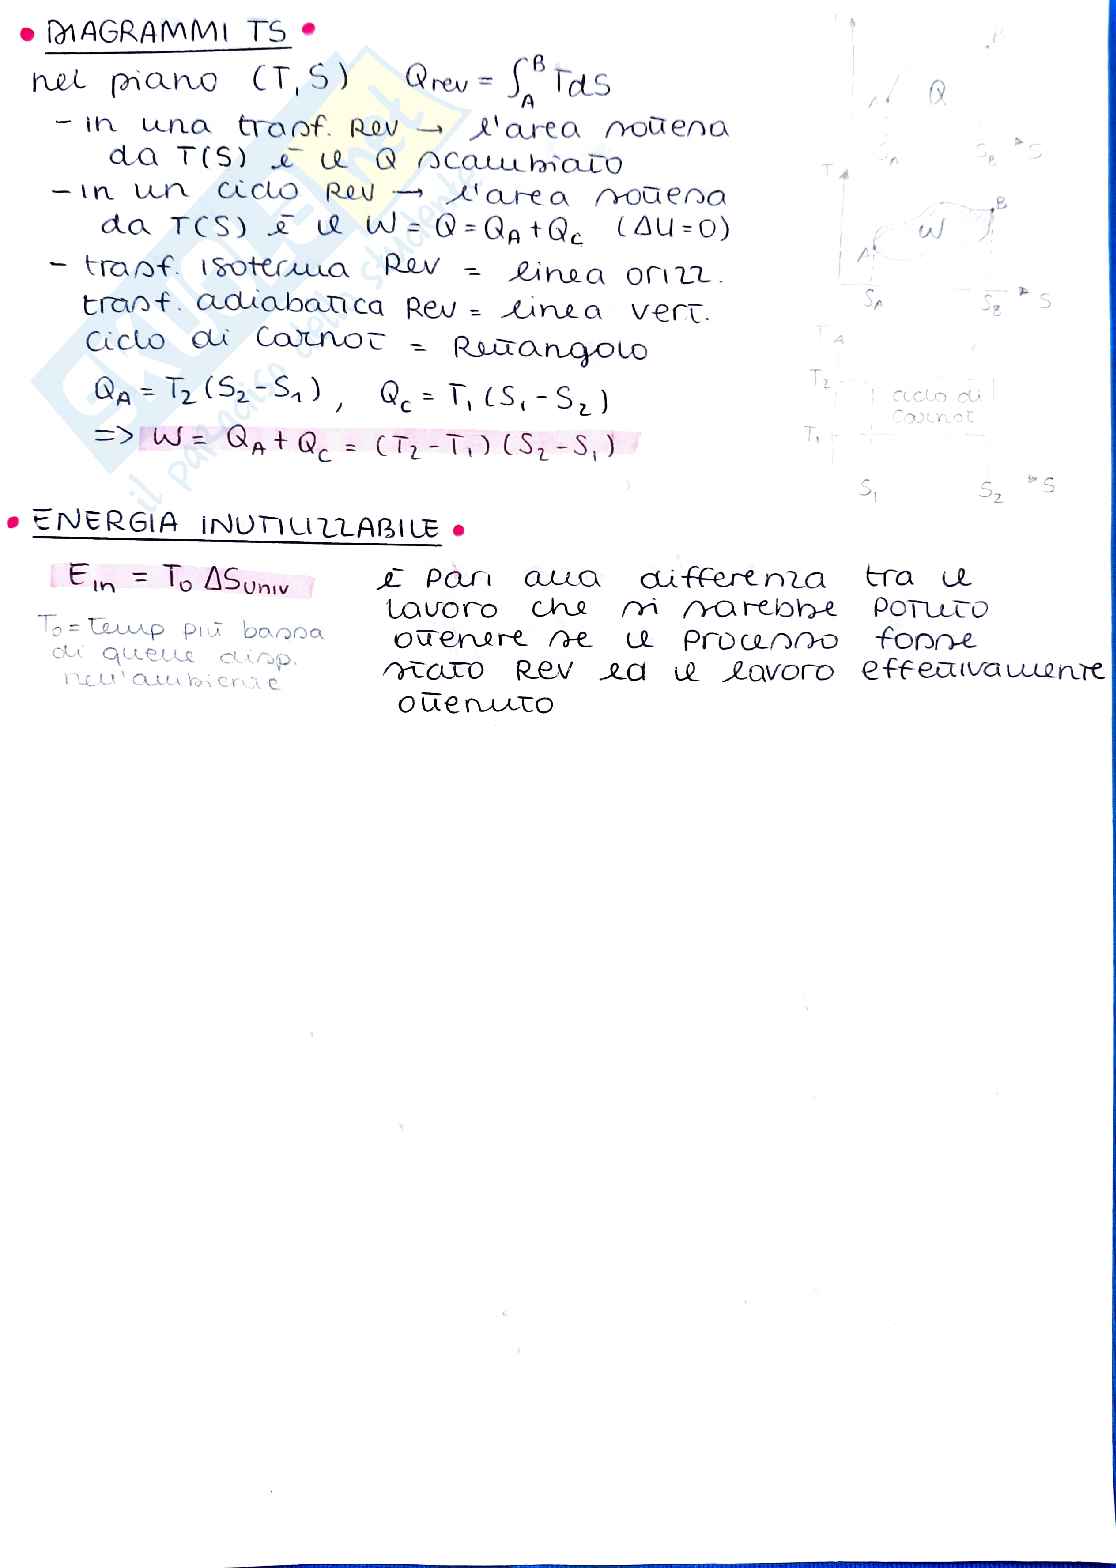 • DIAGRAMMI TS •
nel piano (T,S) Qrev = ∫_A^B TdS
- in una trasf. Rev → l'area sottesa
da T(S) è il Q scambiato
- in un ciclo Rev → l'area sottesa
da T(S) è il W = Q = Q_A + Q_C (ΔU=0)
- trasf. isoterma Rev = linea orizz.
trasf. adiabatica Rev = linea vert.
ciclo di Carnot = Rettangolo
Q_A = T₂ (S₂ - S₁), Q_C = T₁ (S₁ - S₂)
=> W = Q_A + Q_C = (T₂ - T₁) (S₂ - S₁)
Q
S_A S_B S
T
A B
W
S_A S_B S
T
T₂
ciclo di
Carnot
T₁
S₁ S₂ S
• ENERGIA INUTILIZZABILE •
E_in = T₀ ΔS_univ
T₀ = temp più bassa
di quelle disp.
nell'ambiente
è pari alla differenza tra il
lavoro che si sarebbe potuto
ottenere se il processo fosse
stato Rev ed il lavoro effettivamente
ottenuto
SKUOLA.net
il paradiso dello studente